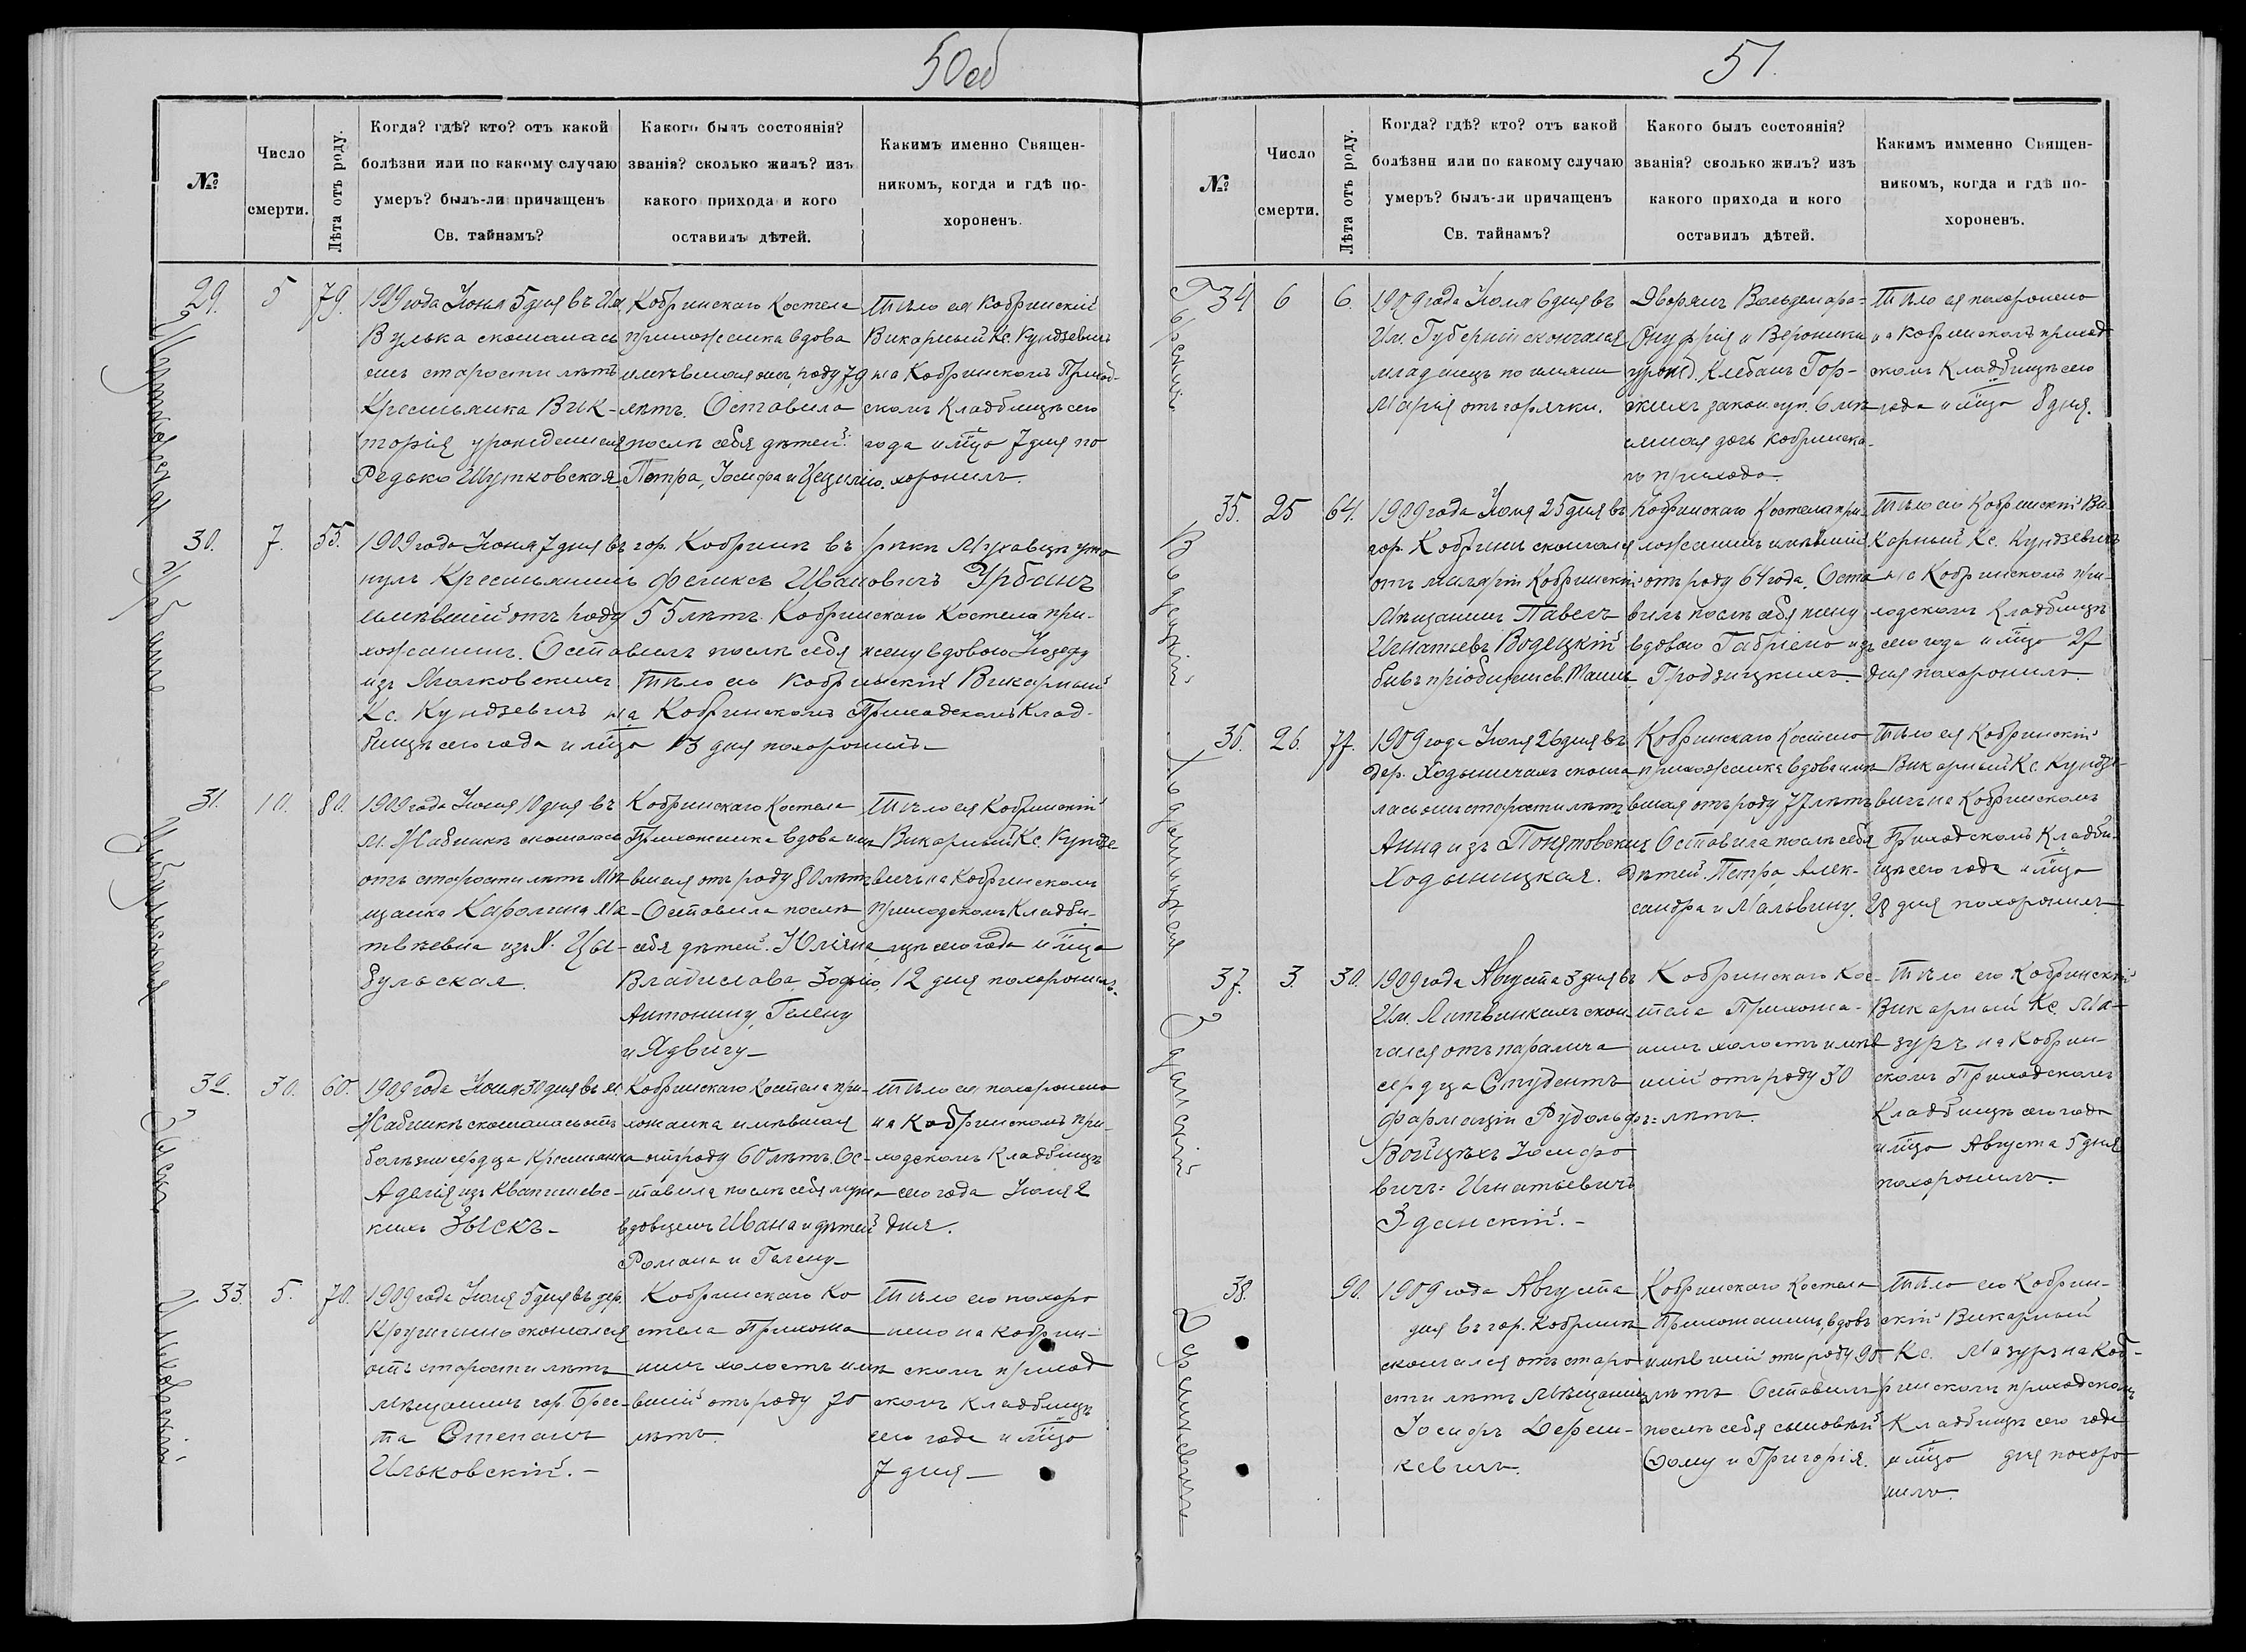 50об
№
Число
смерти.
Лѣта отъ роду.
Когда? гдѣ? кто? отъ какой
болѣзни или по какому случаю
умеръ? былъ-ли причащенъ
Св. тайнамъ?
Какого былъ состоянія?
званія? сколько жилъ? изъ
какого прихода и кого
оставилъ дѣтей.
Какимъ именно Священ-
никомъ, когда и гдѣ по-
хороненъ.
29.
5
79.
1909 года Іюня 5 дня въ Им.
Вулька скончалась
отъ старости лѣтъ
Крестьянка Вик-
торія урожденная
Редько Шутковская.
Кобринскаго Костела
прихожанка вдова
имѣвшая отъ роду 79
лѣтъ. Оставила
послѣ себя дѣтей:
Петра, Іосифа и Цецилію.
Тѣло ея Кобринскій
Викарный Кс. Кундзевичъ
на Кобринскомъ Приход-
скомъ Кладбищѣ сего
года и мѣсяца 7 дня по
хоронилъ.
30.
7.
55.
Урбанъ
1909 года Іюня 7 дня въ гор. Кобринѣ въ рѣкѣ Мухавцѣ уто
нулъ Крестьянинъ Феликсъ Ивановичъ Урбанъ
имѣвшій отъ роду 55 лѣтъ. Кобринскаго Костела при-
хожанинъ. Оставилъ послѣ себя жену вдовою Іозефу
изъ Тѣло его Кобринскій Викарный
Кс. Кундзевичъ на Кобринскомъ Приходскомъ Клад-
бищѣ сего года и мѣсяца 13 дня похоронилъ
31.
10.
80.
Цыбульская
1909 года Іюня 10 дня въ
м. Жабинкѣ скончалась
отъ старости лѣтъ Мѣ
щанка Каролина Ма-
твѣевна изъ N. Цы-
бульская.
Кобринскаго Костела
Прихожанка вдова имѣ
вшая отъ роду 80 лѣтъ
Оставила послѣ
себя дѣтей: Юліяна,
Владислава, Зофію,
Антонину, Гелену
и Ядвигу
Тѣло ея Кобринскій
Викарный Кс. Кундзе-
вичъ на Кобринскомъ
приходскомъ Кладби-
щѣ сего года и мѣсяца
12 дня похоронилъ.
32.
30.
60.
Зыскъ
1909 года Іюня 30 дня въ м.
Жабинкѣ скончалась отъ
болѣзни сердца Крестьянка
Аделія изъ Квапишевс-
кихъ Зыскъ
Кобринскаго Костела при-
хожанка имѣвшая
отъ роду 60 лѣтъ. Ос-
тавила послѣ себя мужа
вдовцемъ Ивана и дѣтей
Романа и Гелену
Тѣло ея похоронено
на Кобринскомъ при-
ходскомъ Кладбищѣ
сего года Іюля 2
дня.
33.
5.
70.
Ильковскій
1909 года Іюля 5 дня въ дер.
скончался
отъ старости лѣтъ
мѣщанинъ гор. Брес-
та Степанъ
Ильковскій.
Кобринскаго Ко
стела Прихожа
нинъ холостъ имѣ
вшій отъ роду 70
лѣтъ.
Тѣло его похоро
нено на Кобрин-
скомъ приход
скомъ кладбищѣ
сего года и мѣсяца
7 дня
51.
№
Число
смерти.
Лѣта отъ роду.
Когда? гдѣ? кто? отъ какой
болѣзни или по какому случаю
умеръ? былъ-ли причащенъ
Св. тайнамъ?
Какого былъ состоянія?
званія? сколько жилъ? изъ
какого прихода и кого
оставилъ дѣтей.
Какимъ имменно Священ-
никомъ, когда и гдѣ по-
хороненъ.
34
6
6.
1909 года Іюля 6 дня въ
Им. Губерніи скончался
младенецъ по имени
Марія отъ горячки.
Дворянъ Вольдемара-
Онуфрія и Вероники
урожд. Клебанъ Гор-
скихъ закон. суп. 6 лѣ
тняя дочь Кобринска-
го прихода.
Тѣло ея похоронено
на Кобринскомъ приход
скомъ Кладбищѣ сего
года и мѣсяца 8 дня.
35.
25
64.
Водецкій
1909 года Іюля 25 дня въ
гор. Кобринѣ скончался
отъ Кобринскій
Мѣщанинъ Павелъ
Игнатьевъ Водецкій
бывъ пріобщенъ св. Таинъ.
Кобринскаго Костела при-
хожанинъ имѣвшій
отъ роду 64 года. Оста
вилъ послѣ себя жену
вдовою Габріелю изъ
Гродзицкихъ.
Тѣло его Кобринскій Ви-
карный Кс. Кундзевичъ
на Кобринскомъ при-
ходскомъ Кладбищѣ
сего года и мѣсяца 27
дня похоронилъ.
36.
26.
77.
Ходыницкая
1909 года Іюля 26 дня въ
дер. Ходыничахъ сконча
лась отъ старости лѣтъ
Анна изъ Понятовскихъ
Ходыницкая.
Кобринскаго Костела
прихожанка вдова имѣ
вшая отъ роду 77 лѣтъ
Оставила послѣ себя
дѣтей: Петра, Алек-
сандра и Мальвину.
Тѣло ея Кобринскій
Викарный Кс. Кундзе
вичъ на Кобринскомъ
Приходскомъ Кладби-
щѣ сего года и мѣсяца
28 дня похоронилъ
37.
3.
30.
Зданскій
1909 года Августа 3 дня въ
Им. Литвинкахъ скон-
чался отъ паралича
сердца Студентъ
фармаціи Рудольфъ=
Войцѣхъ Іосифо
вичъ= Игнатьевичъ
Зданскій.
Кобринскаго Кос-
тела Прихожа-
нинъ холостъ имѣв
шій отъ роду 30
лѣтъ.
Тѣло его Кобринскій
Викарный Кс. Ма-
зуръ на Кобрин-
скомъ Приходскомъ
Кладбищѣ сего года
и мѣсяца Августа 5 дня
похоронилъ.
38.
90.
1909 года Августа
дня въ гор. Кобринѣ
скончался отъ старо
сти лѣтъ Мѣщанинъ
Іосифъ
Кобринскаго Костела
Прихожанинъ, вдовъ
имѣвшій отъ роду 90
лѣтъ Оставилъ
послѣ себя сыновей
Фому и Григорія.
Тѣло его Кобрин-
скій Викарный
Кс. Мазуръ на Коб-
ринскомъ приходскомъ
Кладбищѣ сего года
и мѣсяца дня похоро
нилъ.